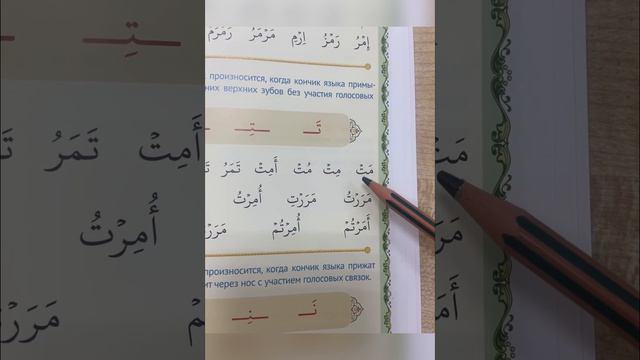 اِمْرُ رَمْزُ اِرْمِ مَرْمَرُ رَمْرَمَ
произносится, когда кончик языка примы-
них верхних зубов без участия голосовых
تَـ تِـ
مَتْ مِتْ مُتْ أَمِتْ تَمَرُ
مَرَرْتُ مَرَرْتِ أُمِرْتُ
أَمَرْتُمْ أُمِرْتُمْ
произносится, когда кончик языка прижат
ит через нос с участием голосовых связок.
نَـ نِـ